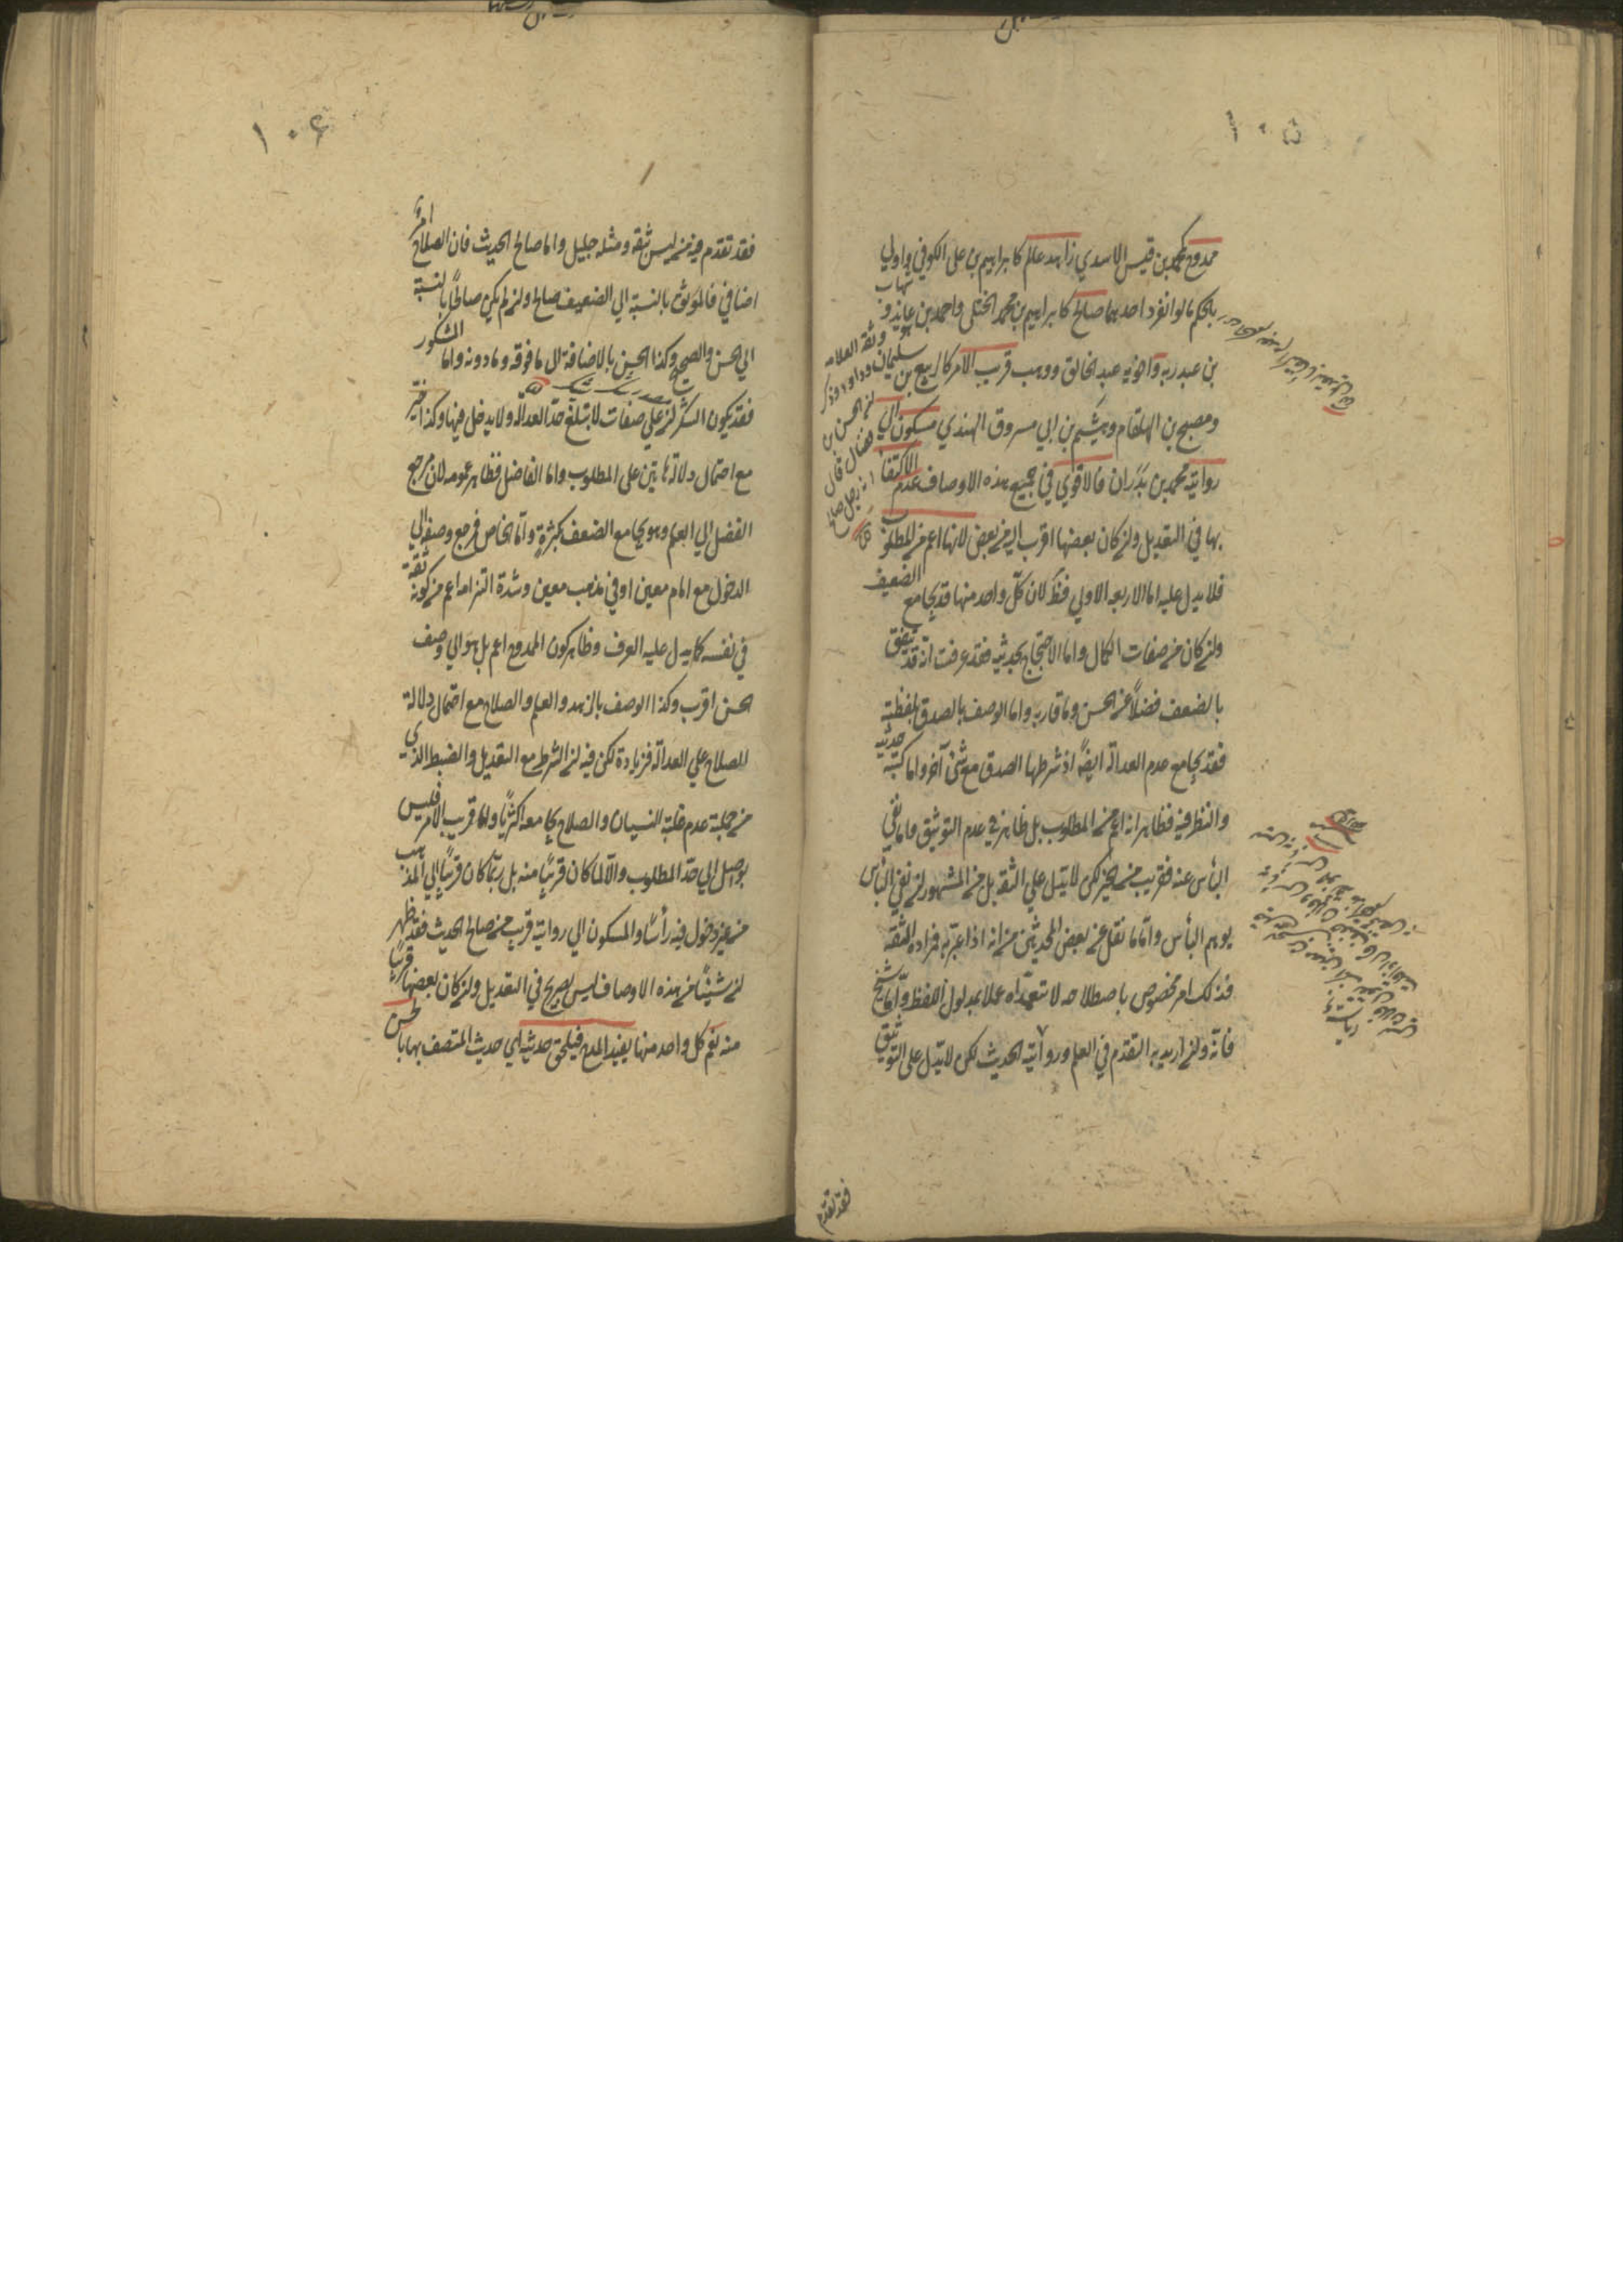 ١٠٥
ممدوح كمحمد بن قيس الاسدي زاهد عالم كابراهيم بن علي الكوفي واولي
بالحكم ما لو انفرد احدهما صالح كابراهيم بن محمد الختلي واحمد بن عايذ وشهاب
بن عبد ربه واخويه عبد الخالق ووهب قريب الامر كالربيع بن سليمان
ومصبح بن الهلقام وهيثم بن ابي مسروق النهدي مسكون الي
روايته محمد بن بدران فالاقوي في جميع هذه الاوصاف عدم الاكتفا
بها في التعديل وان كان بعضها اقرب اليه من بعض لانها اعم من المطلوب
فلا يدل عليه اما الاربعة الاولي فظ لان كل واحد منها قد يجامع الضعيف
وان كان من صفات الكمال واما الاحتجاج بحديثه فقد عرفت انه قد يتفق
بالضعف فضلا عن الحسن وما قاربه واما الوصف بالصدق بلفظيه
فقد يجامع عدم العدالة ايضا اذ شرطها الصدق مع شئ آخر واما كتبة حديثه
والنظر فيه فظاهر انه اعم من المطلوب بل ظاهر في عدم التوثيق واما نفي
البأس عنه فقريب من الخير لكن لا يدل علي الثقة بل من المشهور ان نفي البأس
يوهم البأس واما ما نقل عن بعض المحدثين من انه اذا عبر به فمراده الثقة
فذلك امر مخصوص باصطلاحه لا نتعداه عملا بمدلول اللفظ واما شيخ
فانه وان اريد به التقدم في العلم ورواية الحديث لكن لا يدل علي التوثيق
وثقه العلامة
وداود وذكر
ان الحسن بن
فضال قال
انه رجل صالح
فقد تقدم
١٠٦
فقد تقدم فيه من ليس بثقة ومثله جليل واما صالح الحديث فان الصلاح امر
اضافي فالموثق بالنسبة الي الضعيف صالح وان لم يكن صالحا بالنسبة
الي الحسن والصحيح وكذا الحسن بالاضافة الي ما فوقه وما دونه واما المشكور
فقد يكون الشكر علي صفات لا تبلغ حد العدالة ولا يدخل فيها وكذا خير
مع احتمال دلالة هاتين علي المطلوب واما الفاضل فظاهر عمومه لان مرجع
الفضل الي العلم وهو يجامع الضعف بكثرة واما الخاص فمرجع وصفه الي
الدخول مع امام معين او في مذهب معين وشدة التزامه اعم من كونه ثقة
في نفسه كما يدل عليه العرف وظاهر كون الممدوح اعم بل هو الي وصف
الحسن اقرب وكذا الوصف بالزهد والعلم والصلاح مع احتمال دلالة
الصلاح علي العدالة وزيادة لكن فيه ان الشرط مع التعديل الضبط الذي
من جملته عدم غلبة النسيان والصلاح يجامعه اكثريا واما قريب الامر فليس
بواصل الي حد المطلوب والا لما كان قريبا منه بل ربما كان قريبا الي المذهب
من غير دخول فيه رأسا والمسكون الي روايته قريب من صالح الحديث فقد ظهر
ان شيئا من هذه الاوصاف ليس بصريح في التعديل وان كان بعضها قريبا
منه نعم كل واحد منها يفيد المدح فيلحق حديثه اي حديث المتصف بها بالحسن